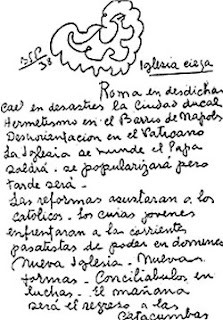 BSP
38
Iglesia ciega
Roma en desdichas
cae en desastres la Ciudad ducal
Hermetismo en el Barrio de Napols
Desorientacion en el Vaticano
La Iglesia se hunde el Papa
saldrá. se popularizará pero
tarde será.
Las reformas asustaran a los
católicos. los curas jovenes
enfrentaran a las corrientes
pasatistas de poder en domines
Nueva Iglesia. Nuevas
formas. Conciliabulos en
luchas. El mañana
será el regreso a las
Catacumbas